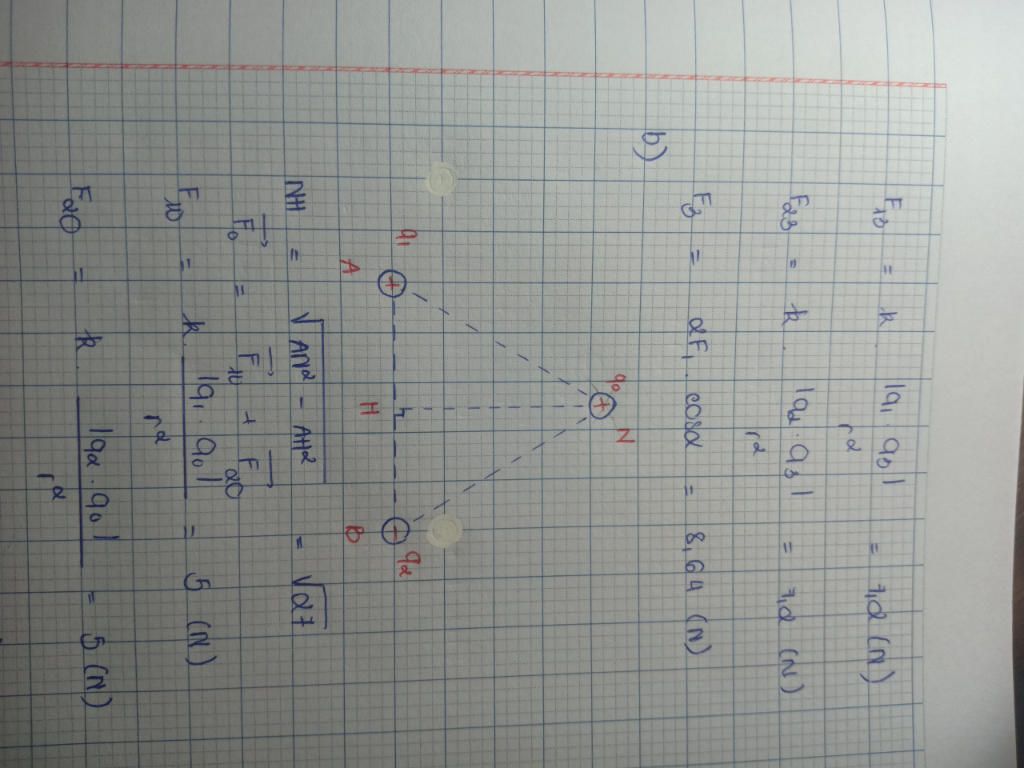 F₁₃ = k . |q₁ . q₃| / r² = 7,2 (N)
F₂₃ = k . |q₂ . q₃| / r² = 7,2 (N)
F₃ = 2F₁ . cosα = 8,64 (N)
b)
q₀ + N
q₁ + + q₂
A H B
NH = √(AN² - AH²) = √27
F₀→ = F₁₀→ + F₂₀→
F₁₀ = k . |q₁ . q₀| / r² = 5 (N)
F₂₀ = k . |q₂ . q₀| / r² = 5 (N)